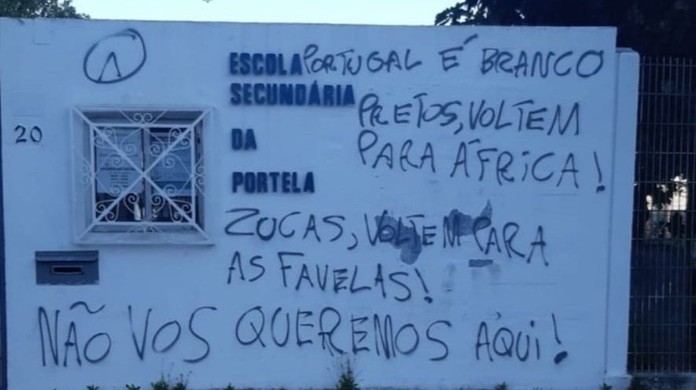 ESCOLA
SECUNDÁRIA
DA
PORTELA
20
PORTUGAL É BRANCO
PRETOS, VOLTEM
PARA ÁFRICA!
ZUCAS, VOLTEM PARA
AS FAVELAS!
NÃO VOS QUEREMOS AQUI!